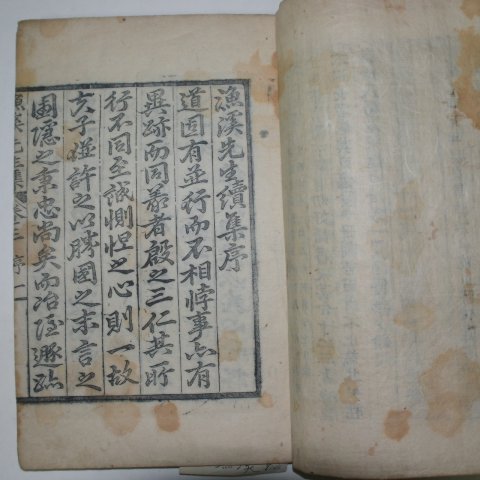 漁溪先生續集序
道固有並行而不相悖事亦有
異跡而同義者殷之三仁其所
行不同至誠惻怛之心則一故
夫子並許之以勝國之末言之
圃隱之秉忠尚矣而冶隱遯跡
漁溪先生集 卷三 序 一